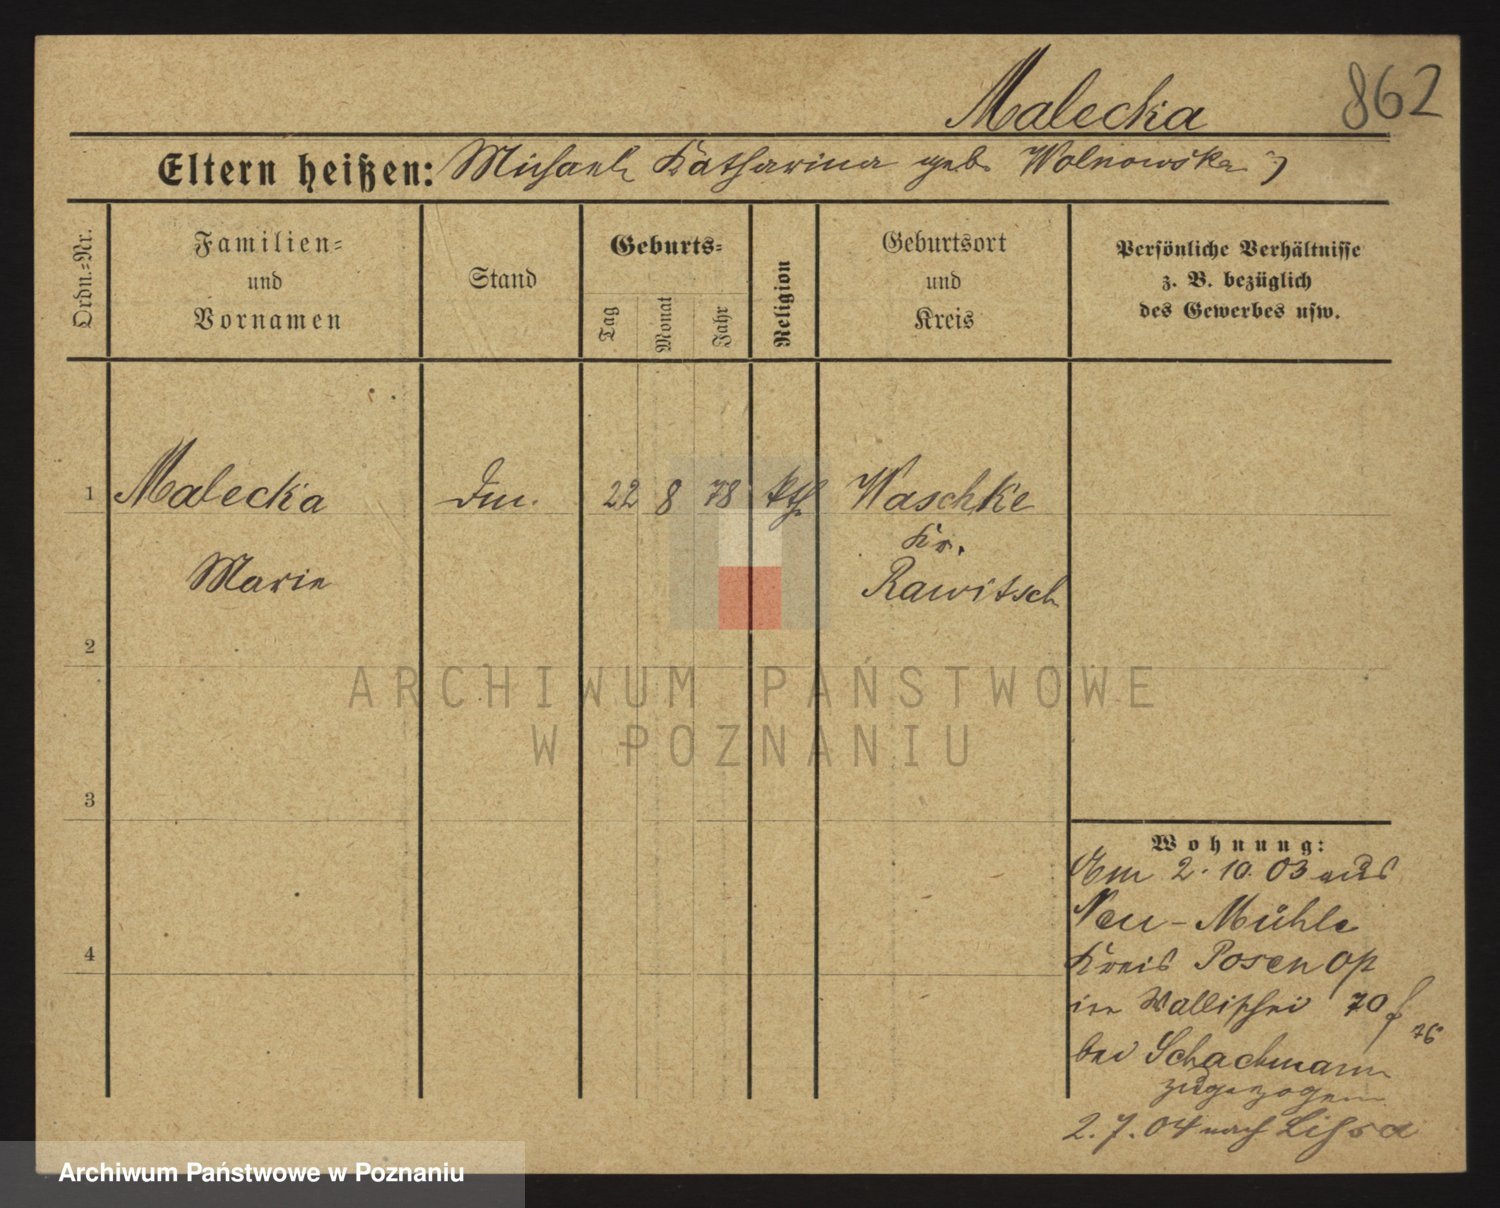 862
Malecka
Eltern heißen: Michael Katharina geb. Wolnowska
Ordn.=Nr.
Familien=
und
Vornamen
Stand
Geburts=
Tag
Monat
Jahr
Religion
Geburtsort
und
Kreis
Persönliche Verhältnisse
z. B. bezüglich
des Gewerbes usw.
1 Malecka 22 8 78 kth Waschke
Kr.
Marie Rawitsch
2
ARCHIWUM PAŃSTWOWE
W POZNANIU
3
Wohnung:
Am 2. 10. 03 aus
Neu-Mühle
4
Kreis Posen Op
in Wallischei 70
76
bei Schachmann
zugezogen
2. 7. 04 nach Lissa
Archiwum Państwowe w Poznaniu